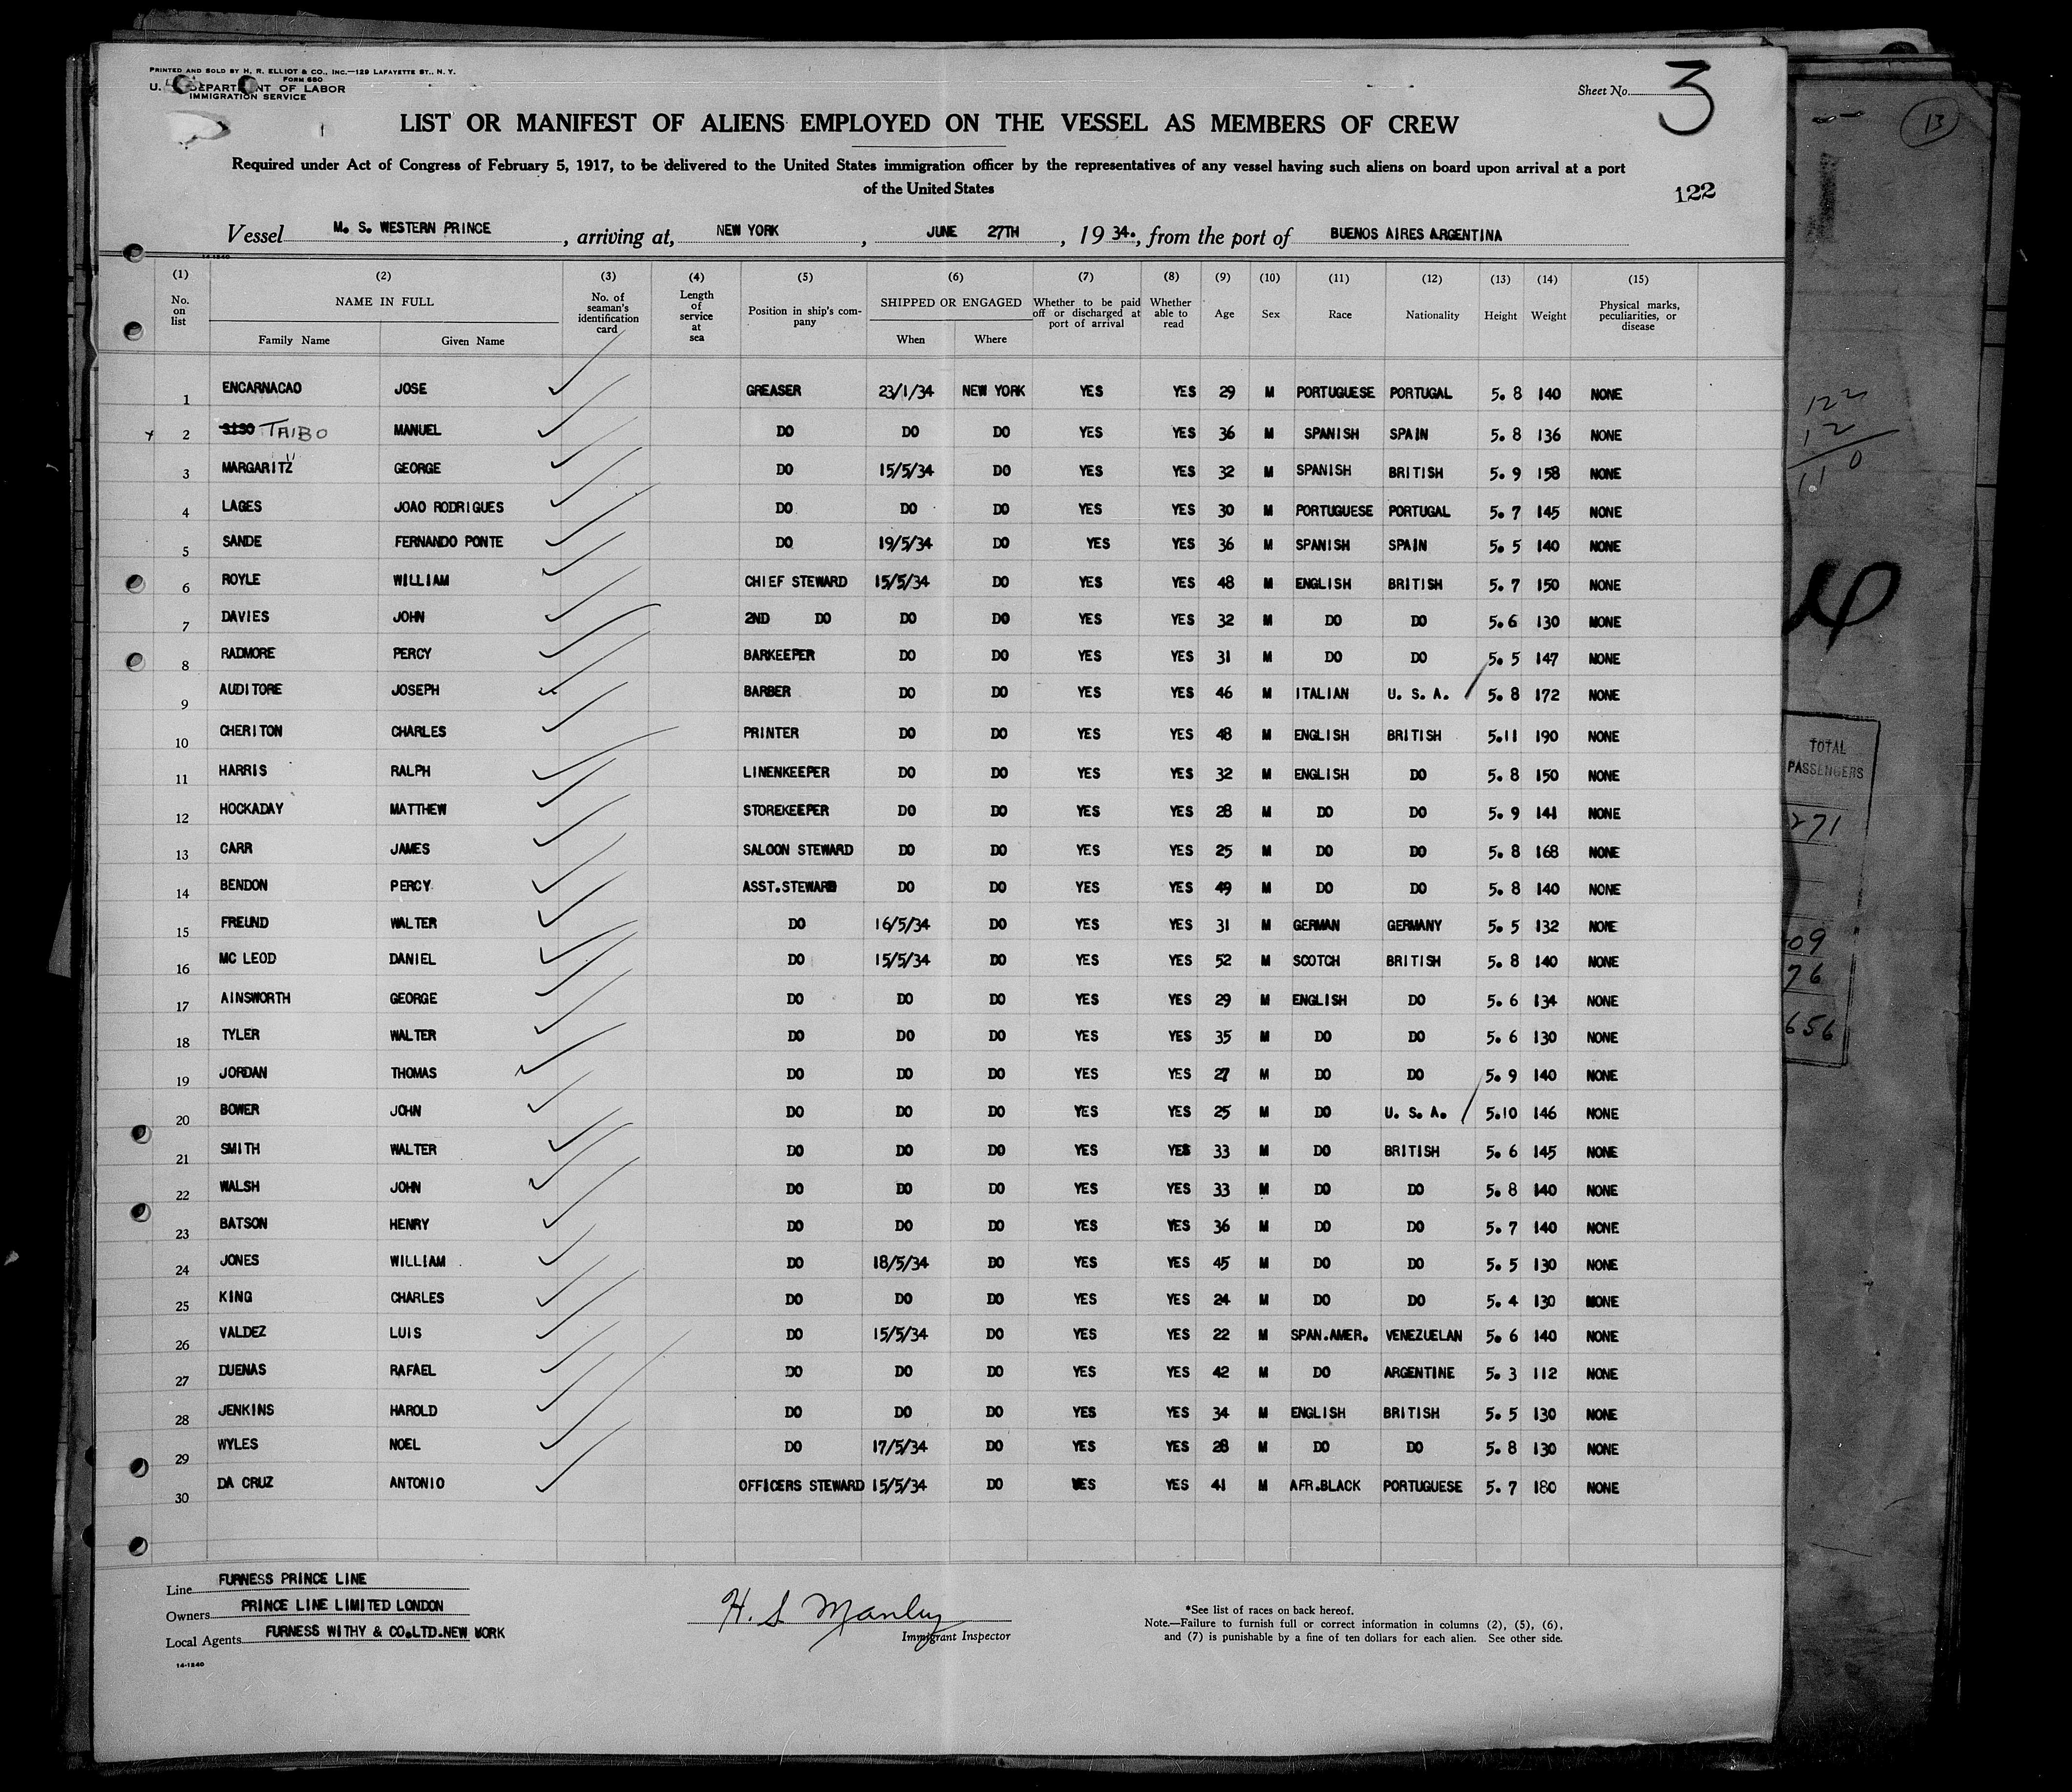 PRINTED AND SOLD BY H. R. ELLIOT & CO., INC.—129 LAFAYETTE ST., N. Y.
FORM 680
U. DEPARTMENT OF LABOR
IMMIGRATION SERVICE
Sheet No. 3
LIST OR MANIFEST OF ALIENS EMPLOYED ON THE VESSEL AS MEMBERS OF CREW
Required under Act of Congress of February 5, 1917, to be delivered to the United States immigration officer by the representatives of any vessel having such aliens on board upon arrival at a port
of the United States
122
Vessel M. S. WESTERN PRINCE , arriving at, NEW YORK , JUNE 27TH , 19 34. , from the port of BUENOS AIRES ARGENTINA
14-1240
(1) (2) (3) (4) (5) (6) (7) (8) (9) (10) (11) (12) (13) (14) (15)
No. on list NAME IN FULL Family Name Given Name No. of seaman's identification card Length of service at sea Position in ship's company SHIPPED OR ENGAGED When Where Whether to be paid off or discharged at port of arrival Whether able to read Age Sex Race Nationality Height Weight Physical marks, peculiarities, or disease
1 ENCARNACAO JOSE GREASER 23/1/34 NEW YORK YES YES 29 M PORTUGUESE PORTUGAL 5. 8 140 NONE
2 SISO TAIBO MANUEL DO DO DO YES YES 36 M SPANISH SPAIN 5. 8 136 NONE
3 MARGARITZ GEORGE DO 15/5/34 DO YES YES 32 M SPANISH BRITISH 5. 9 158 NONE
4 LAGES JOAO RODRIGUES DO DO DO YES YES 30 M PORTUGUESE PORTUGAL 5. 7 145 NONE
5 SANDE FERNANDO PONTE DO 19/5/34 DO YES YES 36 M SPANISH SPAIN 5. 5 140 NONE
6 ROYLE WILLIAM CHIEF STEWARD 15/5/34 DO YES YES 48 M ENGLISH BRITISH 5. 7 150 NONE
7 DAVIES JOHN 2ND DO DO DO YES YES 32 M DO DO 5.6 130 NONE
8 RADMORE PERCY BARKEEPER DO DO YES YES 31 M DO DO 5. 5 147 NONE
9 AUDITORE JOSEPH BARBER DO DO YES YES 46 M ITALIAN U. S. A. 5. 8 172 NONE
10 CHERITON CHARLES PRINTER DO DO YES YES 48 M ENGLISH BRITISH 5.11 190 NONE
11 HARRIS RALPH LINENKEEPER DO DO YES YES 32 M ENGLISH DO 5. 8 150 NONE
12 HOCKADAY MATTHEW STOREKEEPER DO DO YES YES 28 M DO DO 5. 9 141 NONE
13 CARR JAMES SALOON STEWARD DO DO YES YES 25 M DO DO 5. 8 168 NONE
14 BENDON PERCY ASST.STEWARD DO DO YES YES 49 M DO DO 5. 8 140 NONE
15 FREUND WALTER DO 16/5/34 DO YES YES 31 M GERMAN GERMANY 5. 5 132 NONE
16 MC LEOD DANIEL DO 15/5/34 DO YES YES 52 M SCOTCH BRITISH 5. 8 140 NONE
17 AINSWORTH GEORGE DO DO DO YES YES 29 M ENGLISH DO 5. 6 134 NONE
18 TYLER WALTER DO DO DO YES YES 35 M DO DO 5. 6 130 NONE
19 JORDAN THOMAS DO DO DO YES YES 27 M DO DO 5. 9 140 NONE
20 BOWER JOHN DO DO DO YES YES 25 M DO U. S. A. 5.10 146 NONE
21 SMITH WALTER DO DO DO YES YES 33 M DO BRITISH 5. 6 145 NONE
22 WALSH JOHN DO DO DO YES YES 33 M DO DO 5. 8 140 NONE
23 BATSON HENRY DO DO DO YES YES 36 M DO DO 5. 7 140 NONE
24 JONES WILLIAM DO 18/5/34 DO YES YES 45 M DO DO 5. 5 130 NONE
25 KING CHARLES DO DO DO YES YES 24 M DO DO 5. 4 130 NONE
26 VALDEZ LUIS DO 15/5/34 DO YES YES 22 M SPAN.AMER. VENEZUELAN 5. 6 140 NONE
27 DUENAS RAFAEL DO DO DO YES YES 42 M DO ARGENTINE 5. 3 112 NONE
28 JENKINS HAROLD DO DO DO YES YES 34 M ENGLISH BRITISH 5. 5 130 NONE
29 WYLES NOEL DO 17/5/34 DO YES YES 28 M DO DO 5. 8 130 NONE
30 DA CRUZ ANTONIO OFFICERS STEWARD 15/5/34 DO YES YES 41 M AFR.BLACK PORTUGUESE 5. 7 180 NONE
Line FURNESS PRINCE LINE
Owners PRINCE LINE LIMITED LONDON
Local Agents FURNESS WITHY & CO.LTD.NEW YORK
14-1240
H. S Manley
Immigrant Inspector
*See list of races on back hereof.
Note.—Failure to furnish full or correct information in columns (2), (5), (6),
and (7) is punishable by a fine of ten dollars for each alien. See other side.
13
122
12
110
TOTAL
PASSENGERS
271
09
76
656